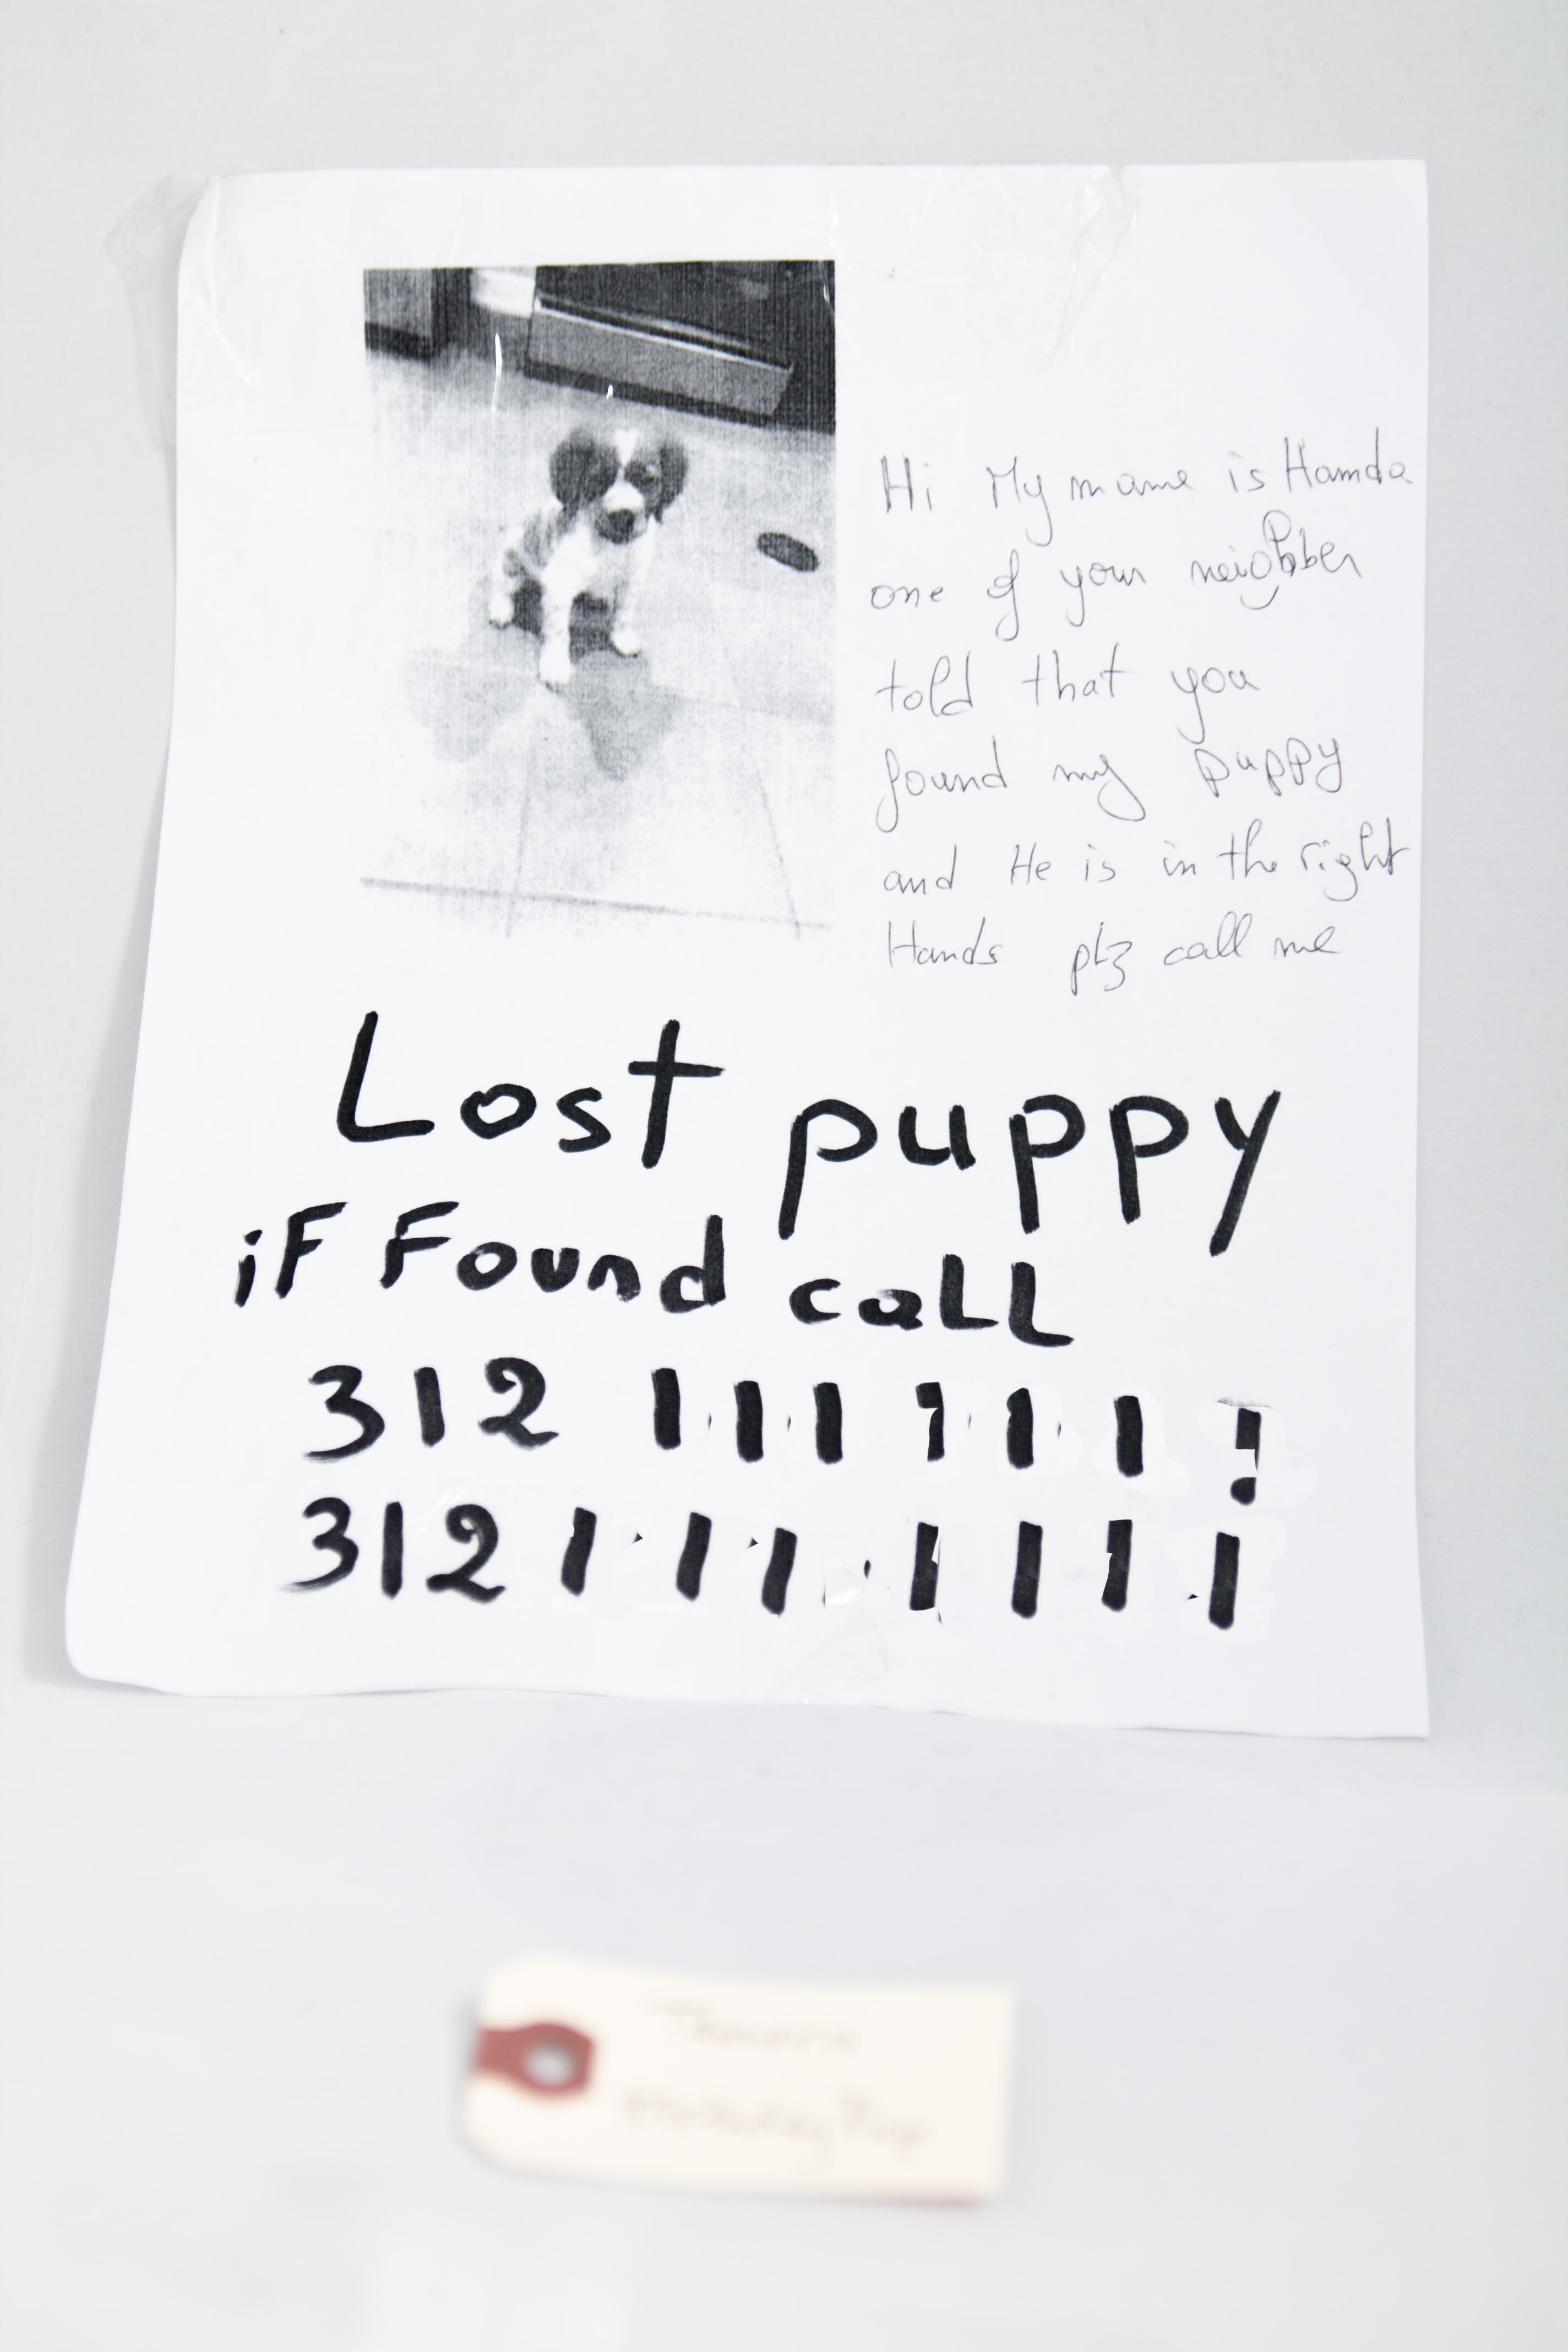 Hi My name is Hamda
one of your neighbber
told that you
found my puppy
and He is in the right
Hands plz call me
Lost puppy
iF Found call
312 111 1111
312 111 1111